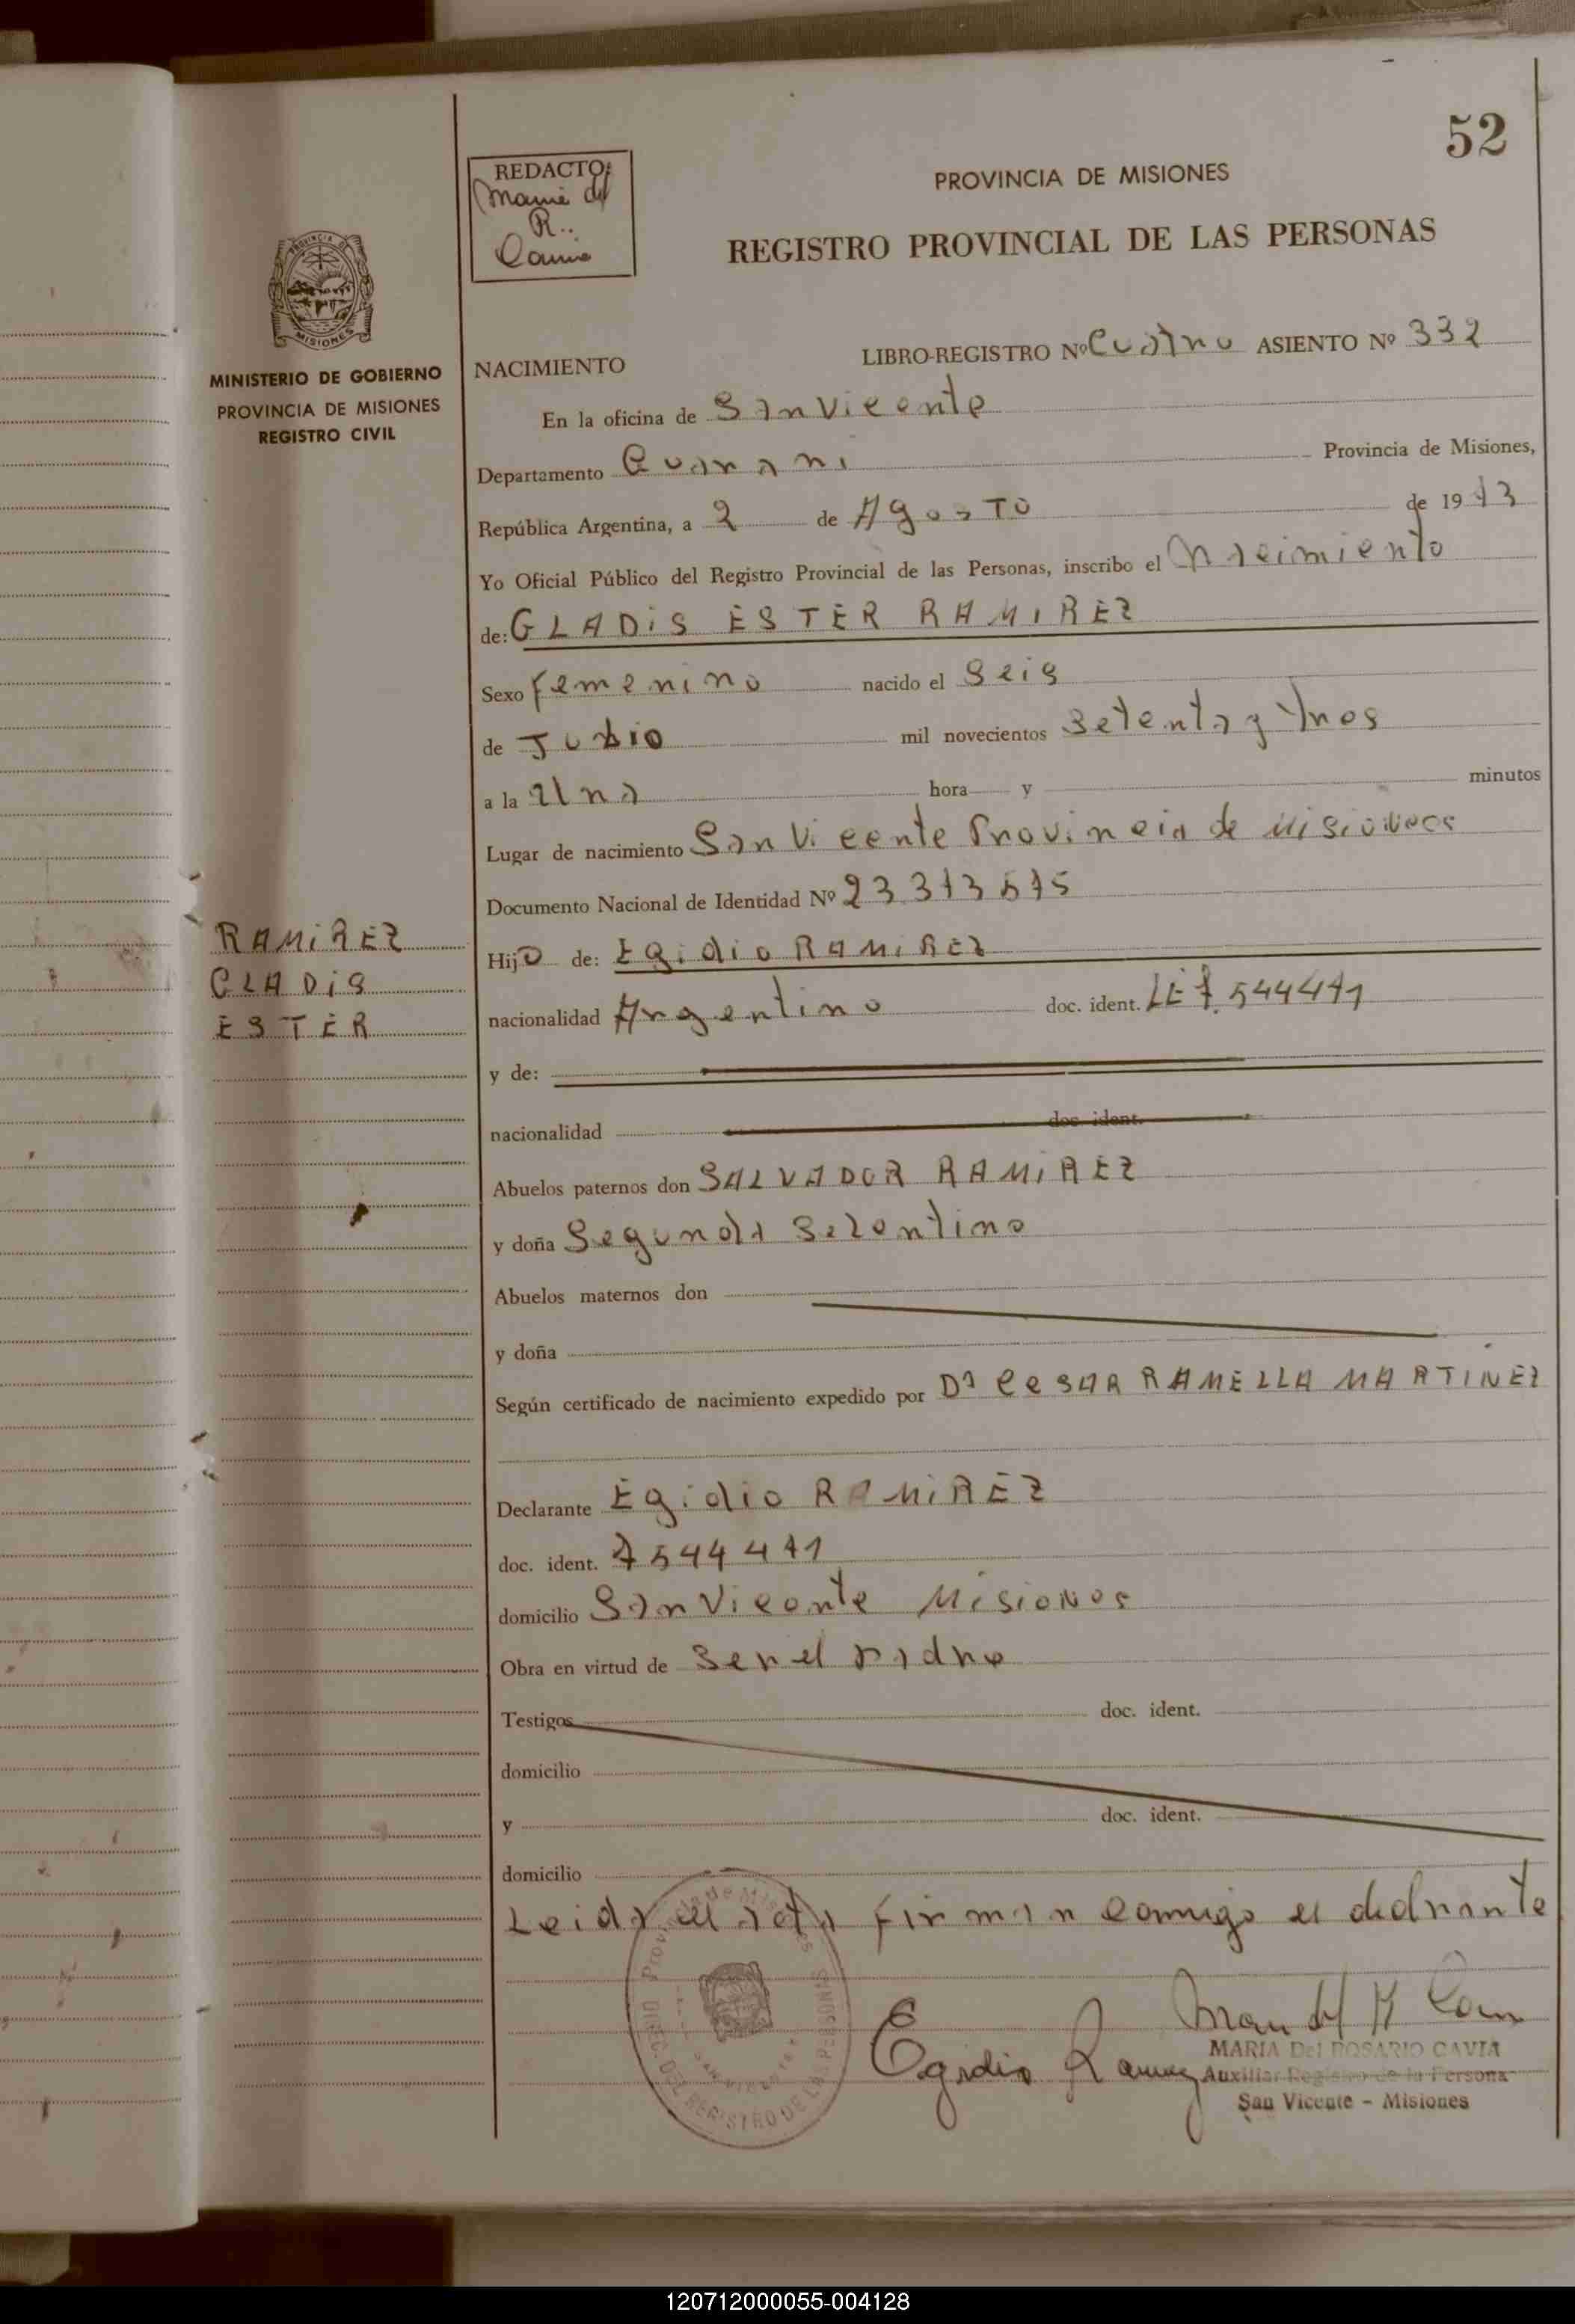 52
REDACTO:
Maria del
R.
Cavia
PROVINCIA DE MISIONES
REGISTRO PROVINCIAL DE LAS PERSONAS
MISIONES
MINISTERIO DE GOBIERNO
PROVINCIA DE MISIONES
REGISTRO CIVIL
NACIMIENTO
LIBRO-REGISTRO Nº Cuatro ASIENTO Nº 332
En la oficina de San Vicente
Departamento Guarani Provincia de Misiones,
República Argentina, a 2 de Agosto de 1973
Yo Oficial Público del Registro Provincial de las Personas, inscribo el Nacimiento
de: GLADiS ESTER RAMIREZ
Sexo femenino nacido el Seis
de mil novecientos Setenta y
a la Una hora y minutos
Lugar de nacimiento San Vicente Provincia de Misiones
Documento Nacional de Identidad Nº 23.373.575
Hijo de: Egidio RAMIREZ
nacionalidad Argentino doc. ident. LE 7.544471
y de:
nacionalidad doc. ident.
Abuelos paternos don SALVADOR RAMIREZ
y doña Segunda
Abuelos maternos don
y doña
Según certificado de nacimiento expedido por Dr CeSAR RAMELLA MARTINEZ
Declarante Egidio RAMiREZ
doc. ident. 7544471
domicilio San Vicente Misiones
Obra en virtud de Ser el padre
Testigos doc. ident.
domicilio
y doc. ident.
domicilio
Leida el acta firman conmigo el declarante
RAMiREZ
GLADiS
ESTER
Provincia de Misiones
DIREC. DEL REGISTRO DE LAS PERSONAS
SAN VICENTE
Egidio Ramirez
MARIA Del ROSARIO CAVIA
Auxiliar Registro de la Persona
San Vicente - Misiones
120712000055-004128